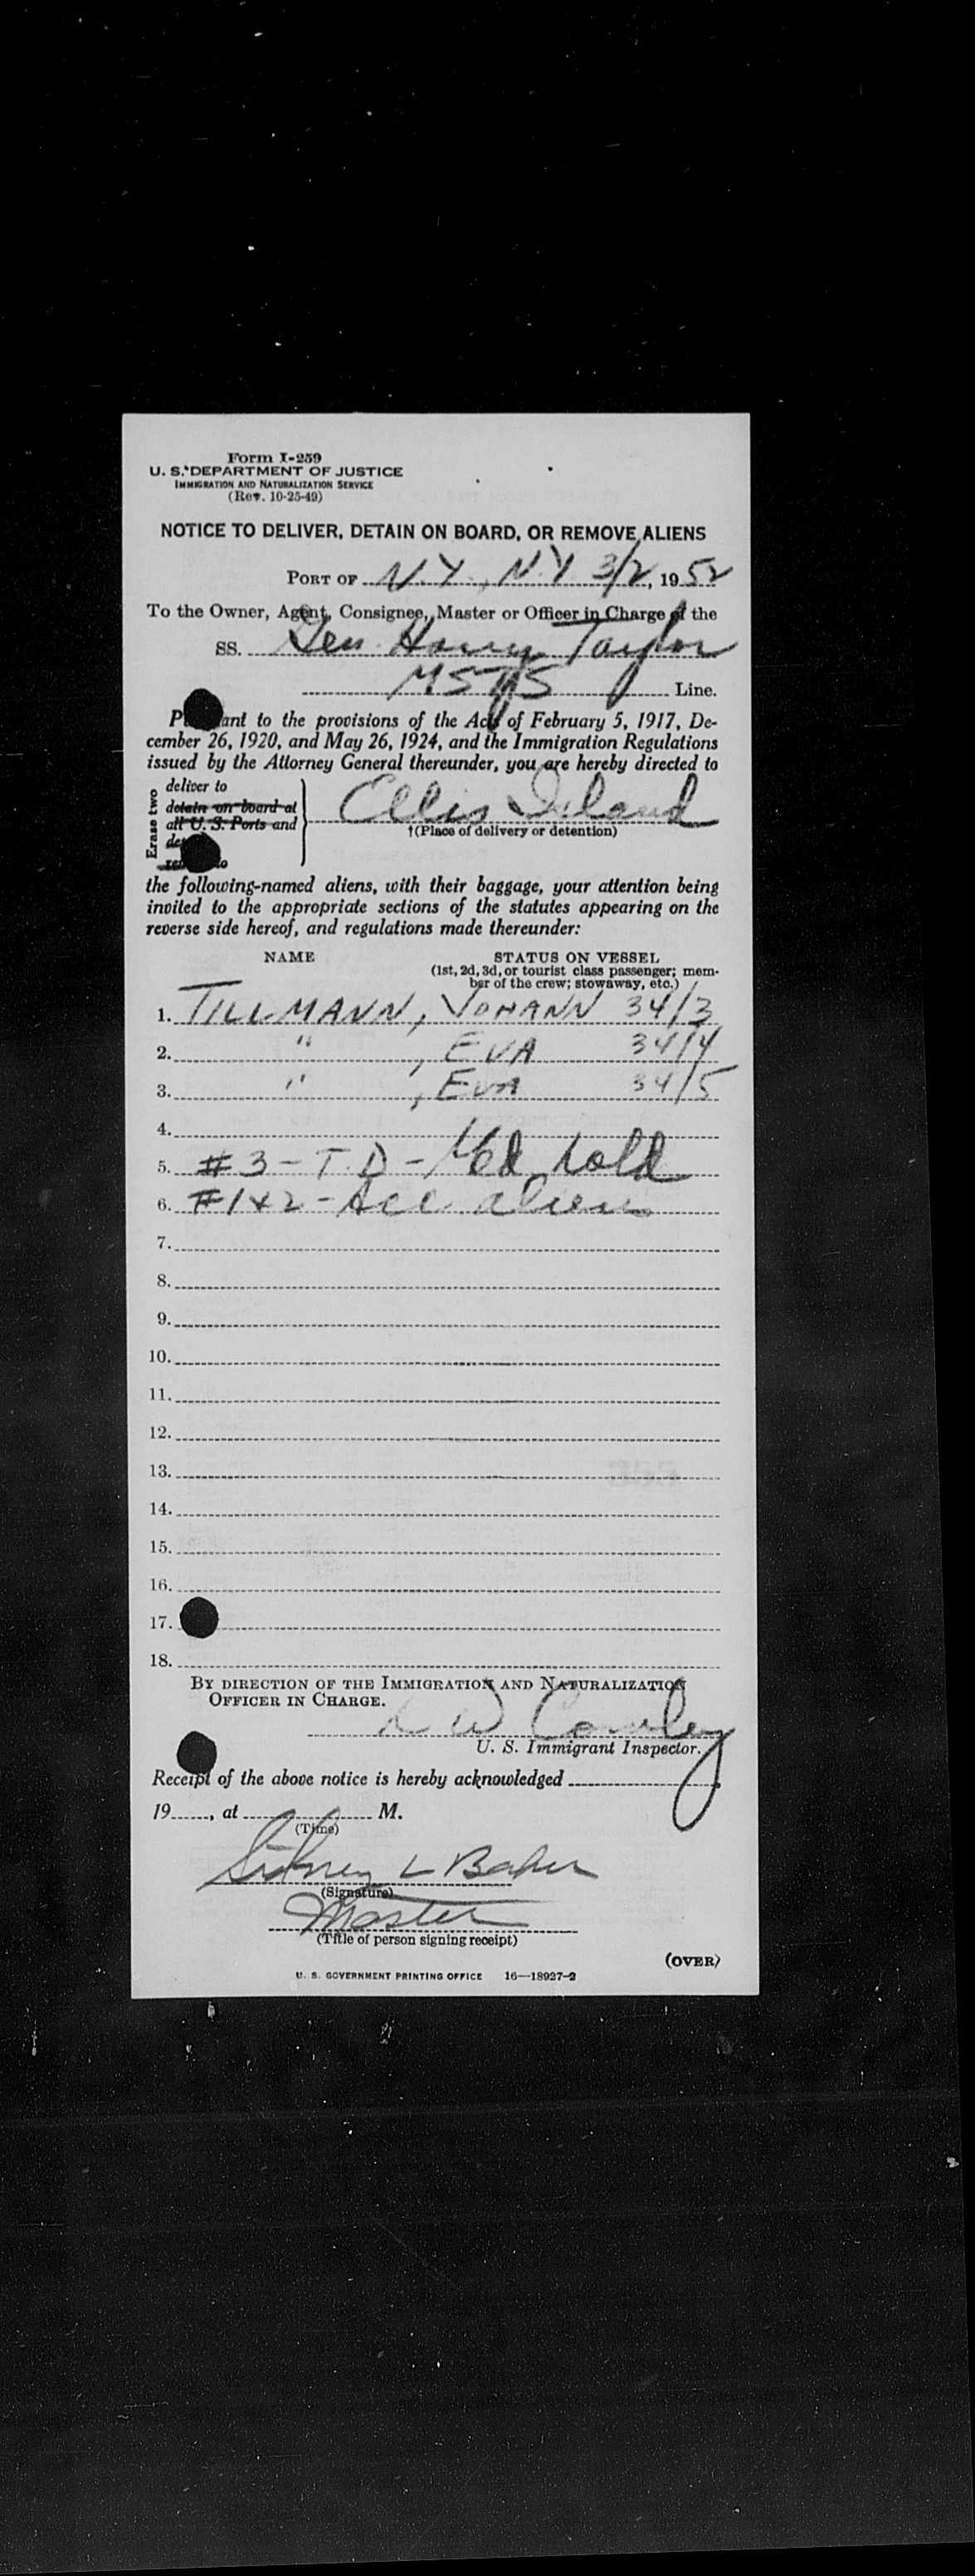 Form I-259
U. S. DEPARTMENT OF JUSTICE
IMMIGRATION AND NATURALIZATION SERVICE
(Rev. 10-25-49)
NOTICE TO DELIVER, DETAIN ON BOARD, OR REMOVE ALIENS
PORT OF N.Y., N.Y 3/2, 1952
To the Owner, Agent, Consignee, Master or Officer in Charge of the
SS. Gen Harry Taylor
MSTS Line.
to the provisions of the Acts of February 5, 1917, De-
cember 26, 1920, and May 26, 1924, and the Immigration Regulations
issued by the Attorney General thereunder, you are hereby directed to
Erase two
deliver to
detain on board at
all U. S. Ports and
Ellis Island
†(Place of delivery or detention)
the following-named aliens, with their baggage, your attention being
invited to the appropriate sections of the statutes appearing on the
reverse side hereof, and regulations made thereunder:
NAME STATUS ON VESSEL
(1st, 2d, 3d, or tourist class passenger; mem-
ber of the crew; stowaway, etc.)
1. TILLMANN, YOHANN 34/3
2. " , EVA 34/4
3. " , EVA 34/5
4.
5. #3 - T.D - Med hold
6. #1+2 - Acc alien
7.
8.
9.
10.
11.
12.
13.
14.
15.
16.
17.
18.
BY DIRECTION OF THE IMMIGRATION AND NATURALIZATION
OFFICER IN CHARGE.
U. S. Immigrant Inspector.
Receipt of the above notice is hereby acknowledged
19....., at M.
(Time)
Sidney L Baker
(Signature)
Master
(Title of person signing receipt)
(OVER)
U. S. GOVERNMENT PRINTING OFFICE 16—18927-2